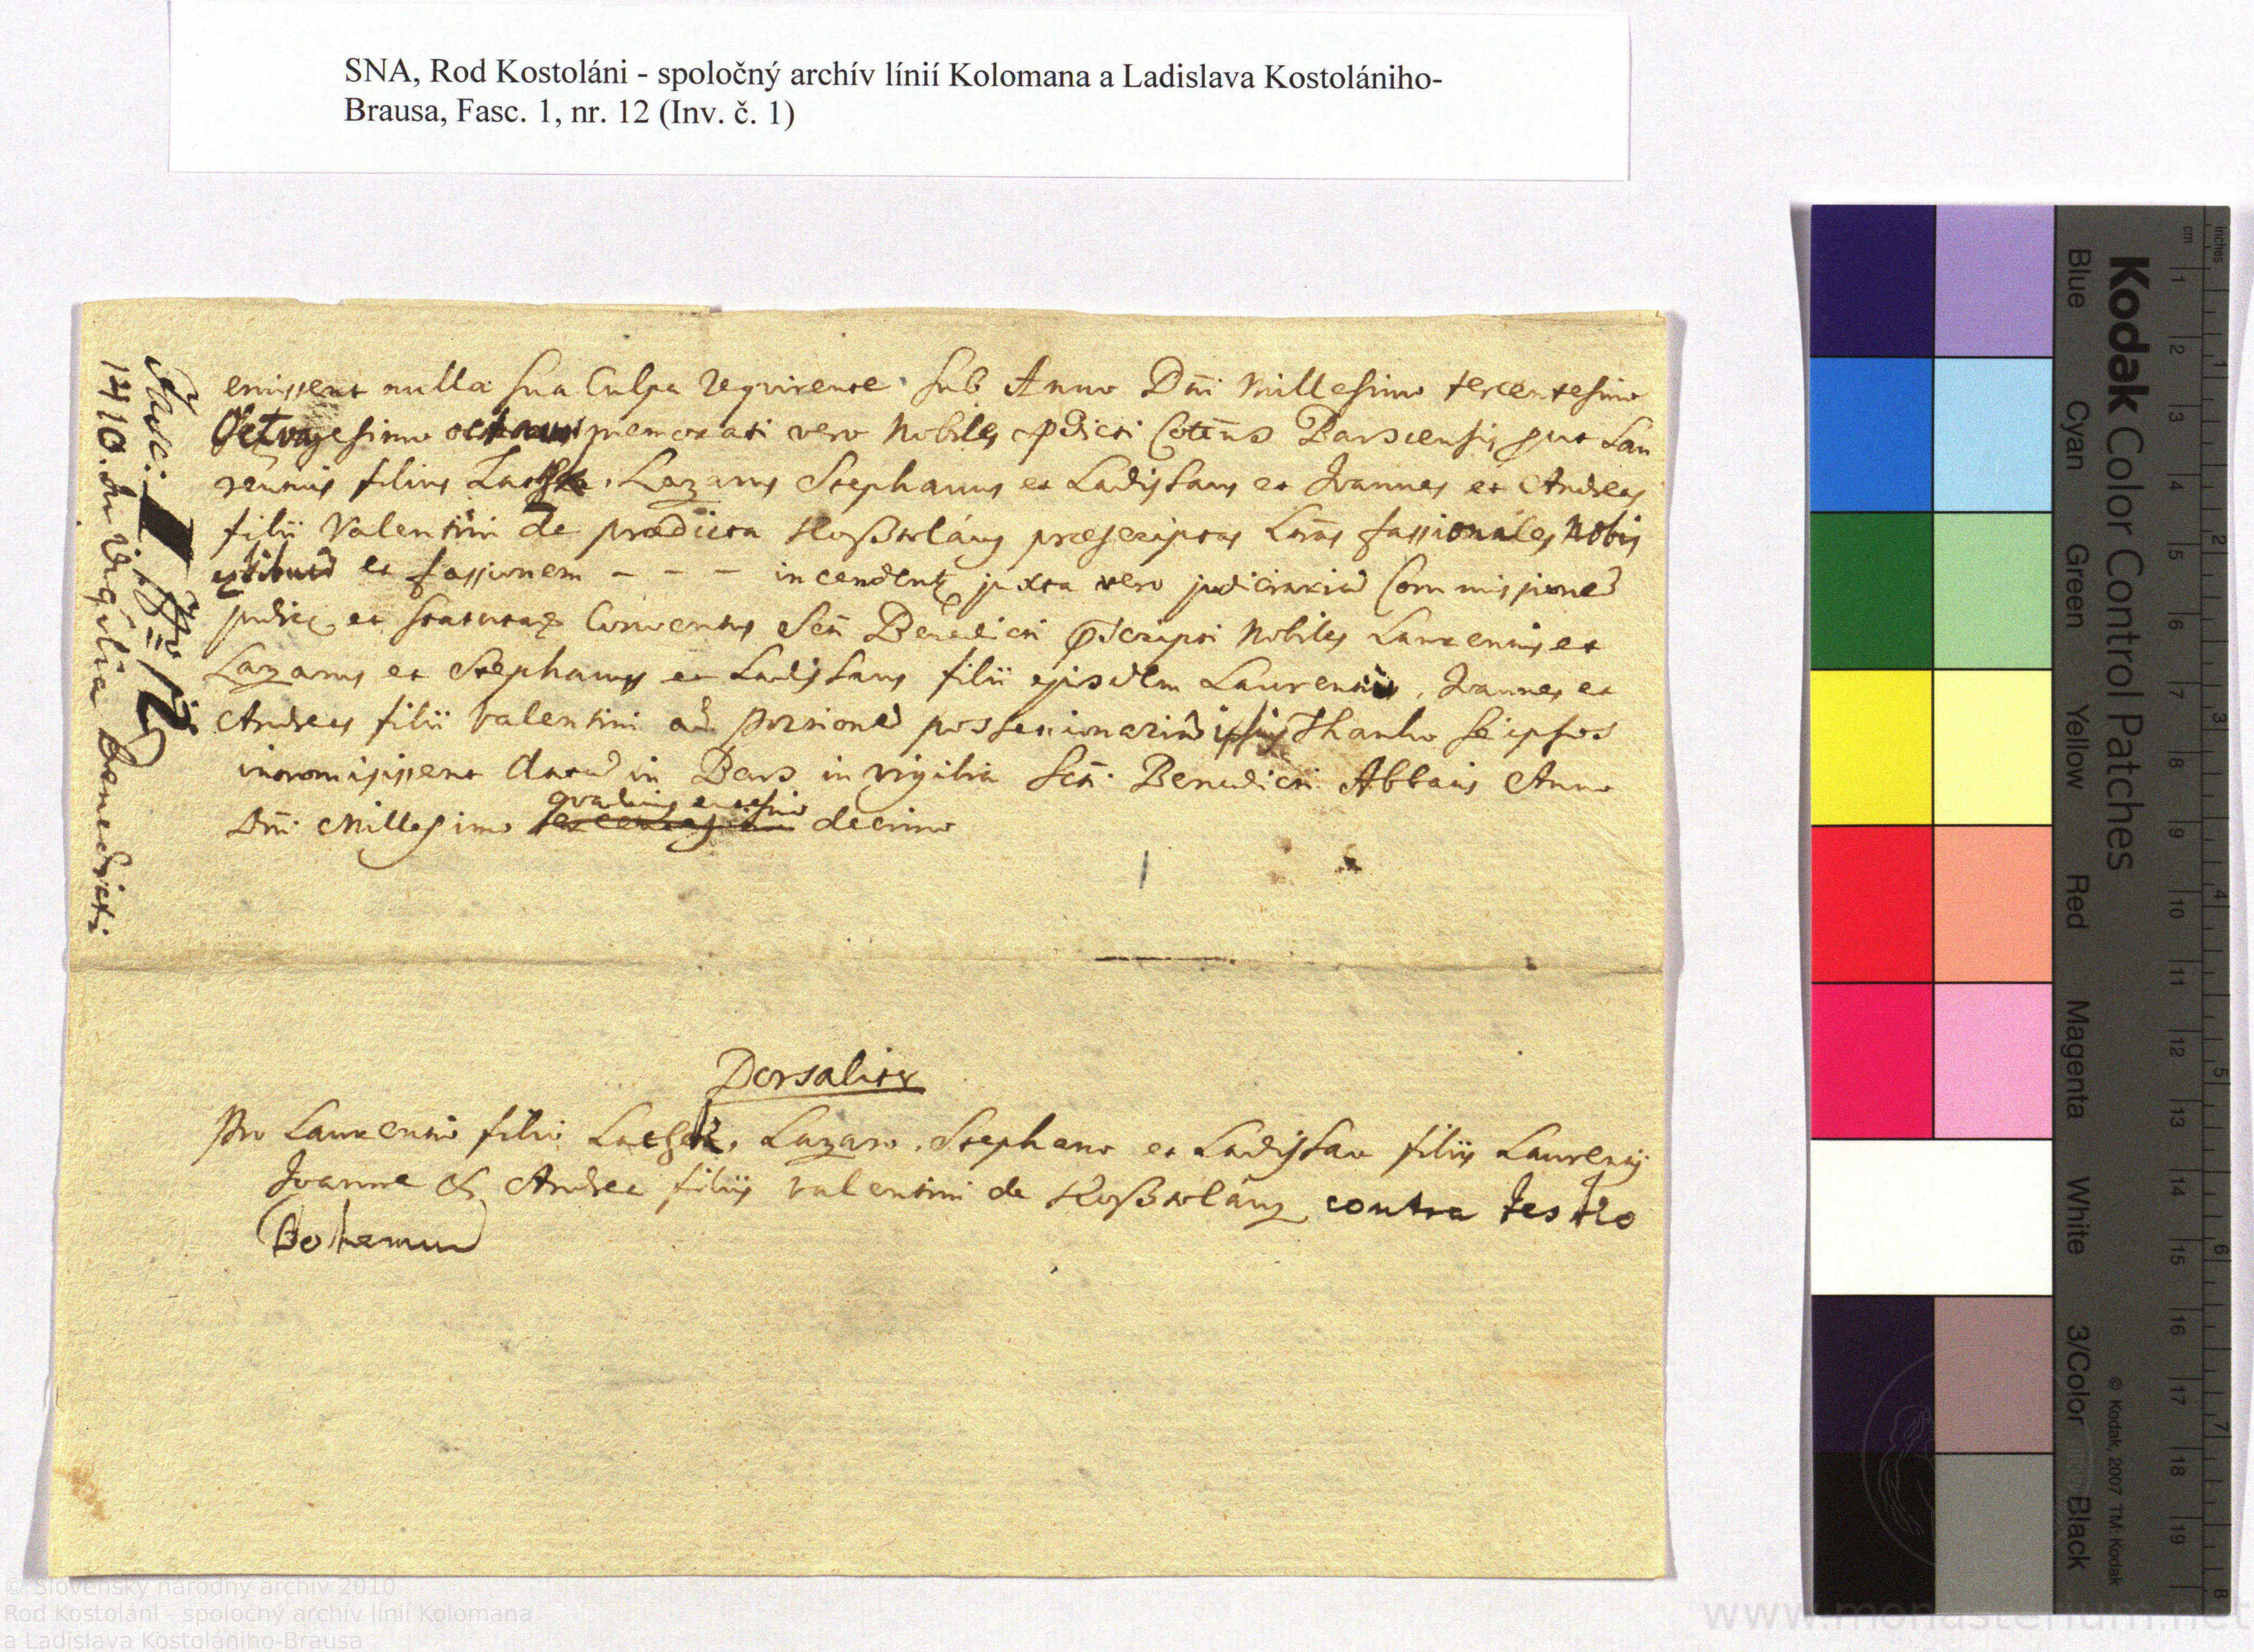 SNA, Rod Kostoláni - spoločný archív línií Kolomana a Ladislava Kostolániho-
Brausa, Fasc. 1, nr. 12 (Inv. č. 1)
Fasc: I. Nro 12
1410. In Vigilia Benedicti
emissent nulla sua Culpa requirente. Sub Anno Dni Millesimo tercentesimo
Octvagesimo memorati vero Nobiles pdicti Cottus Barsiensis put Lau
rentius filius Lachk. Lazarus Stephanus et Ladislaus et Joannes et Andreas
filii Valentini de praedicta Koßtolány praescriptas Lras fassionales Nobis
et fassionem - - - incendent juxta vero judiciariã Commissionẽ
Conventus Scti Benedicti pscripti Nobiles Laurentius et
Lazarus et Stephanus et Ladislaus filii ejusdem Laurentii, Joannes et
Andreas filii Valentini ad Portionẽ possessionariã ipsius Thanko se ipsos
intromisissent datũ in Bars in vigilia Scti. Benedicti Abbatis Anno
Dni Millesimo quadringentesimo decimo
Dorsaliter
Pro Laurentio filio Lachk, Lazaro, Stephano et Ladislao filiis Laurentij
Joanne & Andrea filiis Valentini de Koßtolány contra Jesko
Bohemum
Kodak Color Control Patches
Blue Cyan Green Yellow Red Magenta White 3/Color Black
cm 1 2 3 4 5 6 7 8 9 10 11 12 13 14 15 16 17 18 19
inches 1 2 3 4 5 6 7 8
© Kodak, 2007 TM: Kodak
© Slovenský národný archív 2010
Rod Kostoláni - spoločný archív línií Kolomana
a Ladislava Kostolániho-Brausa
www.monasterium.net